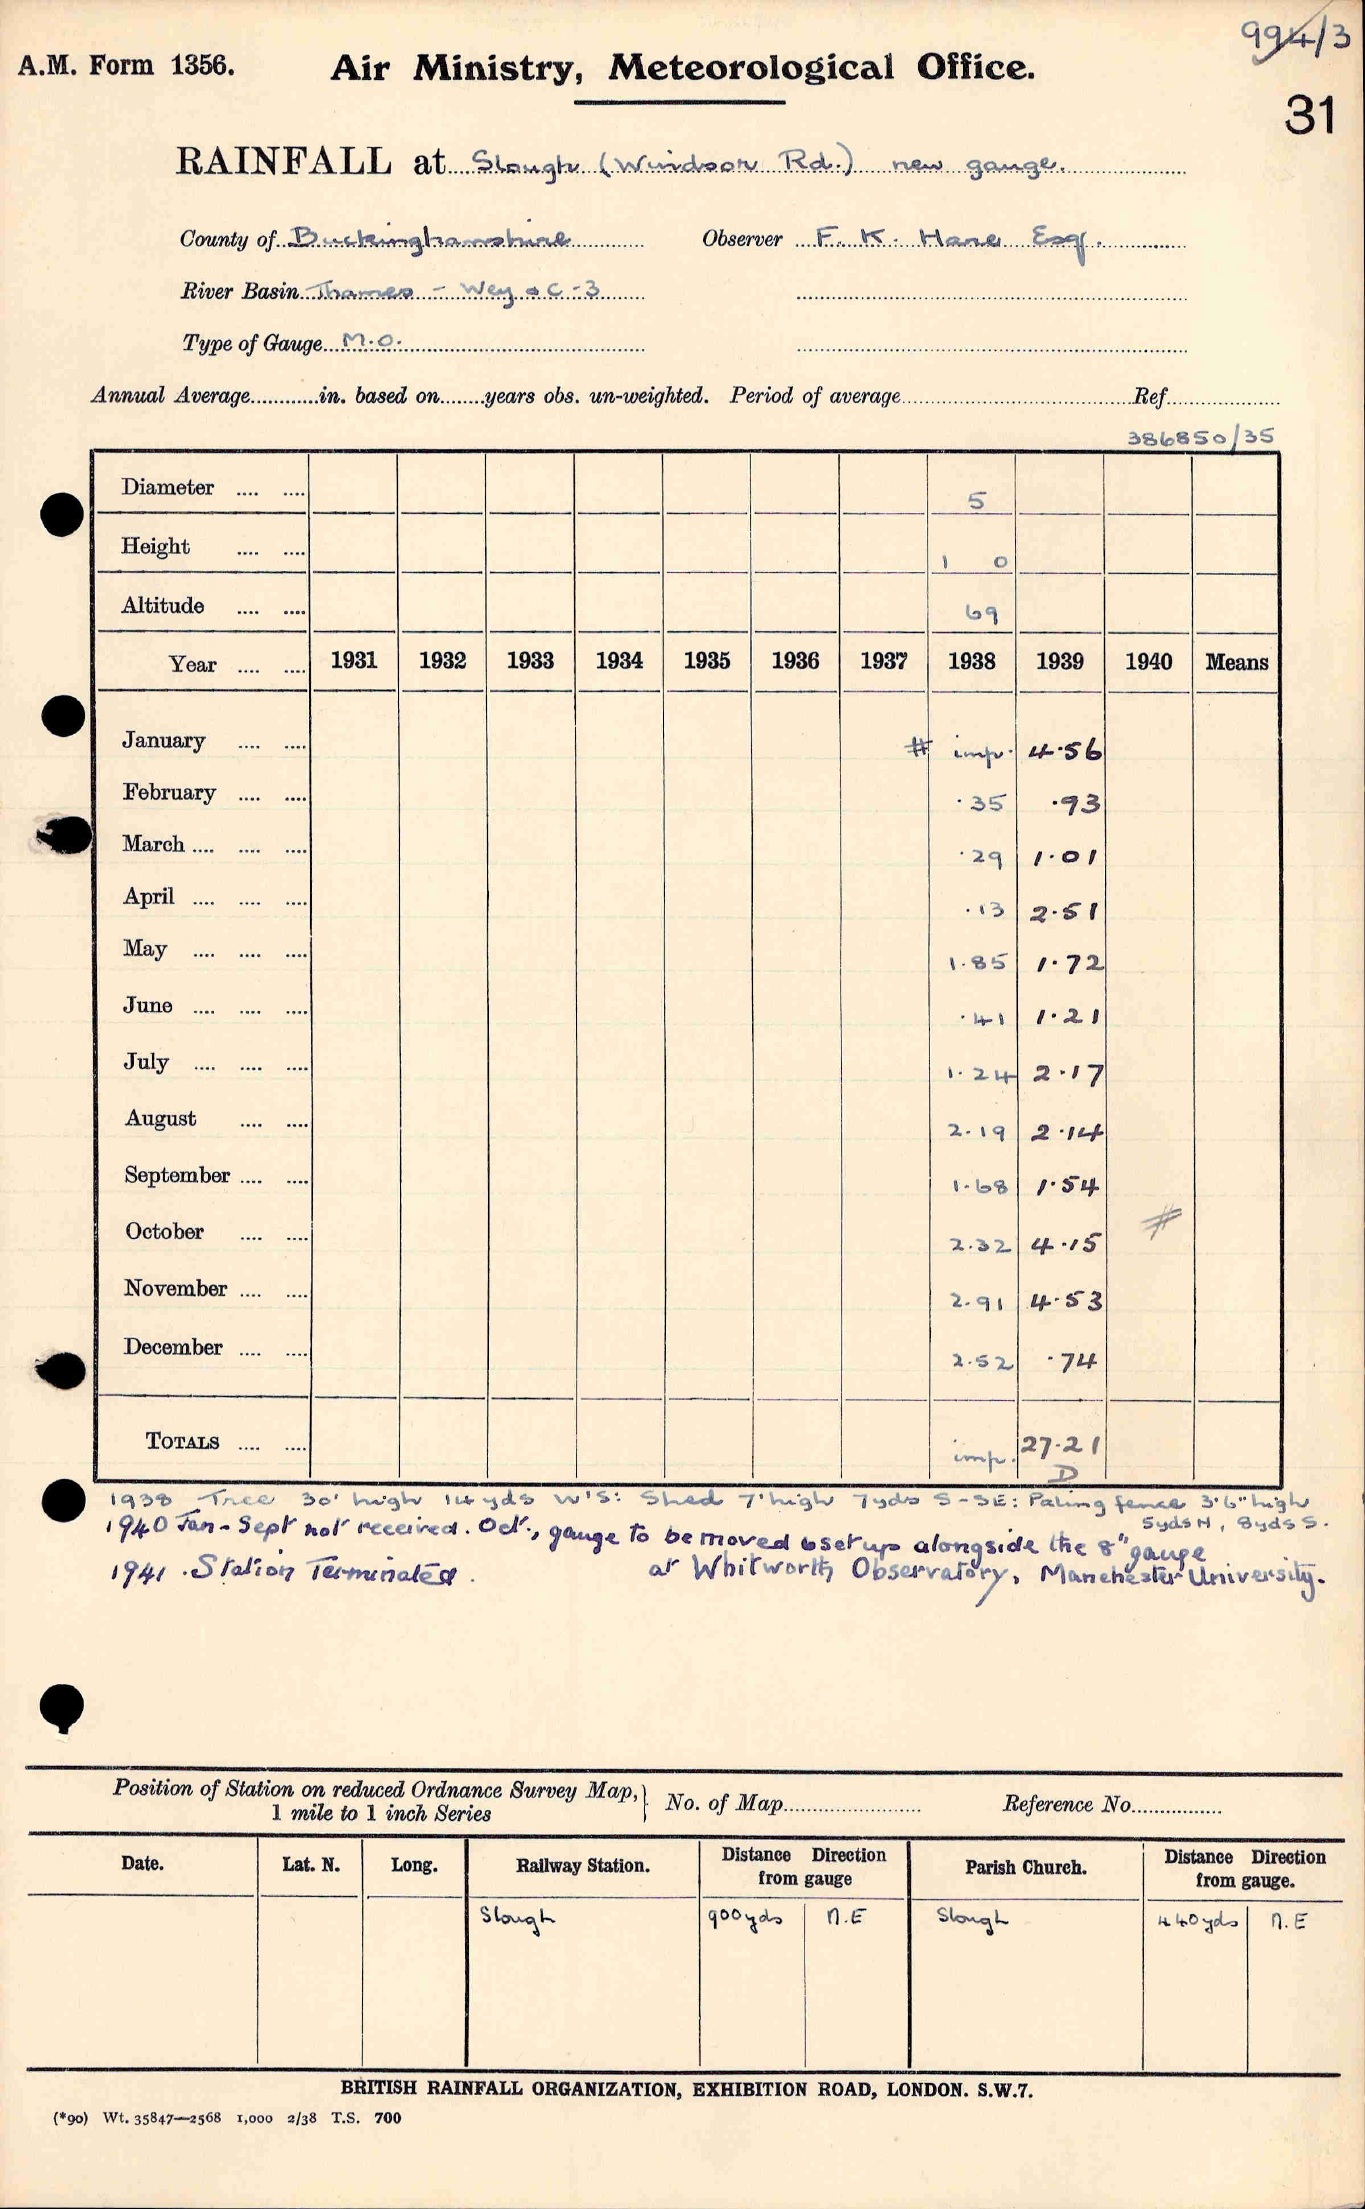 994/3
A.M. Form 1356.
Air Ministry, Meteorological Office.
31
RAINFALL at Slough (Windsor Rd.) new gauge.
County of Buckinghamshire Observer F. K. Hare Esq.
River Basin Thames - Wey & C - 3
Type of Gauge M.O.
Annual Average............in. based on........years obs. un-weighted. Period of average.............Ref.............
386850/35
Diameter .... .... 5
Height .... .... 1 0
Altitude .... .... 69
Year .... .... 1931 1932 1933 1934 1935 1936 1937 1938 1939 1940 Means
January .... .... # imp. 4.56
February .... .... .35 .93
March .... .... .... .29 1.01
April .... .... .... .13 2.51
May .... .... .... 1.85 1.72
June .... .... .... .41 1.21
July .... .... .... 1.24 2.17
August .... .... 2.19 2.14
September .... .... 1.68 1.54
October .... .... 2.32 4.15 #
November .... .... 2.91 4.53
December .... .... 2.52 .74
TOTALS .... .... imp. 27.21
D
1938 Tree 30' high 14 yds W'S: Shed 7' high 7yds S-SE: Paling fence 3'6" high
5yds N, 8yds S.
1940 Jan - Sept not received. Oct., gauge to be moved & set up alongside the 8" gauge
1941. Station Terminated. at Whitworth Observatory, Manchester University.
Position of Station on reduced Ordnance Survey Map, } No. of Map........................ Reference No................
1 mile to 1 inch Series
Date. Lat. N. Long. Railway Station. Distance Direction from gauge Parish Church. Distance Direction from gauge.
Slough 900yds N.E Slough 440yds N.E
BRITISH RAINFALL ORGANIZATION, EXHIBITION ROAD, LONDON. S.W.7.
(*90) Wt. 35847—2568 1,000 2/38 T.S. 700